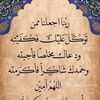 ربنا اجعلنا ممن
توكل عليك فكفيته
ودعاك مخلصا فأجبته
وحمدك شاكرا فأكرمته
اللهم آمين